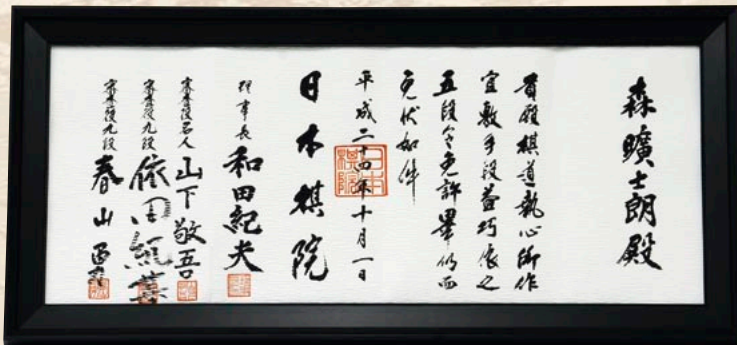 森曠士朗殿
貴殿棋道執心所作
宜敷手段益巧依之
五段令免許畢仍而
免状如件
平成二十四年十月一日
日本棋院
日本棋院
理事長 和田紀夫
審査役名人 山下敬吾
審査役九段 依田紀基
審査役九段 春山